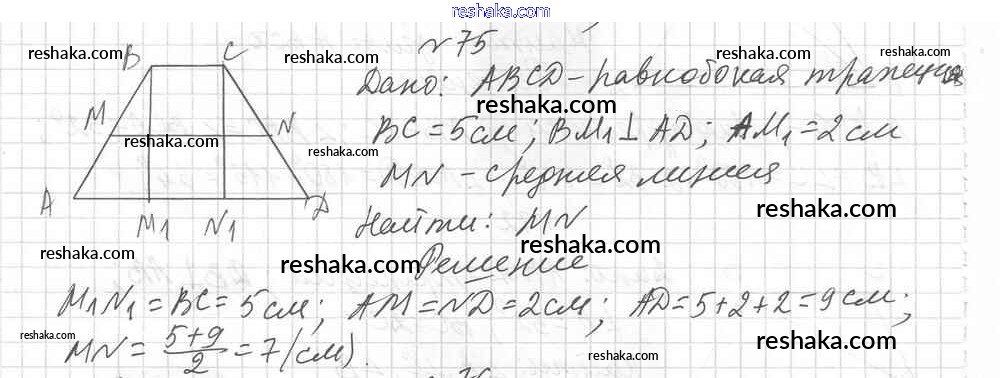 www.reshaka.com
№75
reshaka.com
reshaka.com
reshaka.com
B
C
Дано: ABCD - равнобокая трапеция
reshaka.com
reshaka.com
M
N
BC = 5 см; BM₁ ⊥ AD; AM₁ = 2 см
reshaka.com
reshaka.com
MN - средняя линия
A
M₁
N₁
D
reshaka.com
Найти: MN
reshaka.com
reshaka.com
reshaka.com
Решение
M₁N₁ = BC = 5 см; AM = ND = 2 см; AD = 5+2+2 = 9 см;
reshaka.com
reshaka.com
reshaka.com
MN = (5+9)/2 = 7 (см).
reshaka.com
reshaka.com